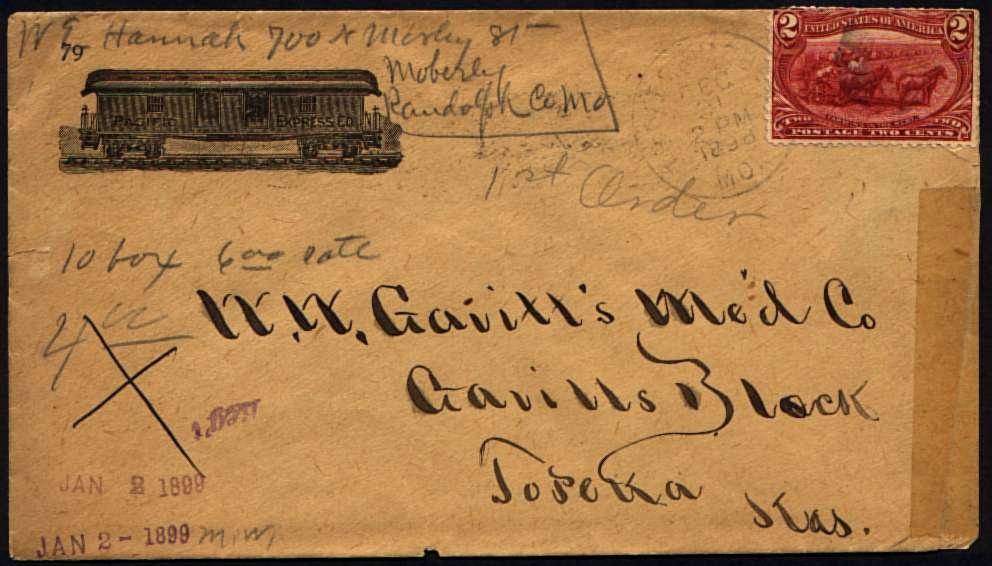 W E Hannah 700 N Morley St
79
Moberly
Randolph Co. Mo
PACIFIC EXPRESS CO.
2 UNITED STATES OF AMERICA 2
TWO TWO
POSTAGE TWO CENTS
DEC
31
2 PM
MO.
1st Order
10 box 6 00 rate
4
W.W. Gavitt's Med Co
Gavitts Block
Topeka
Kas.
JAN 2 1899
JAN 2 - 1899 M.W.